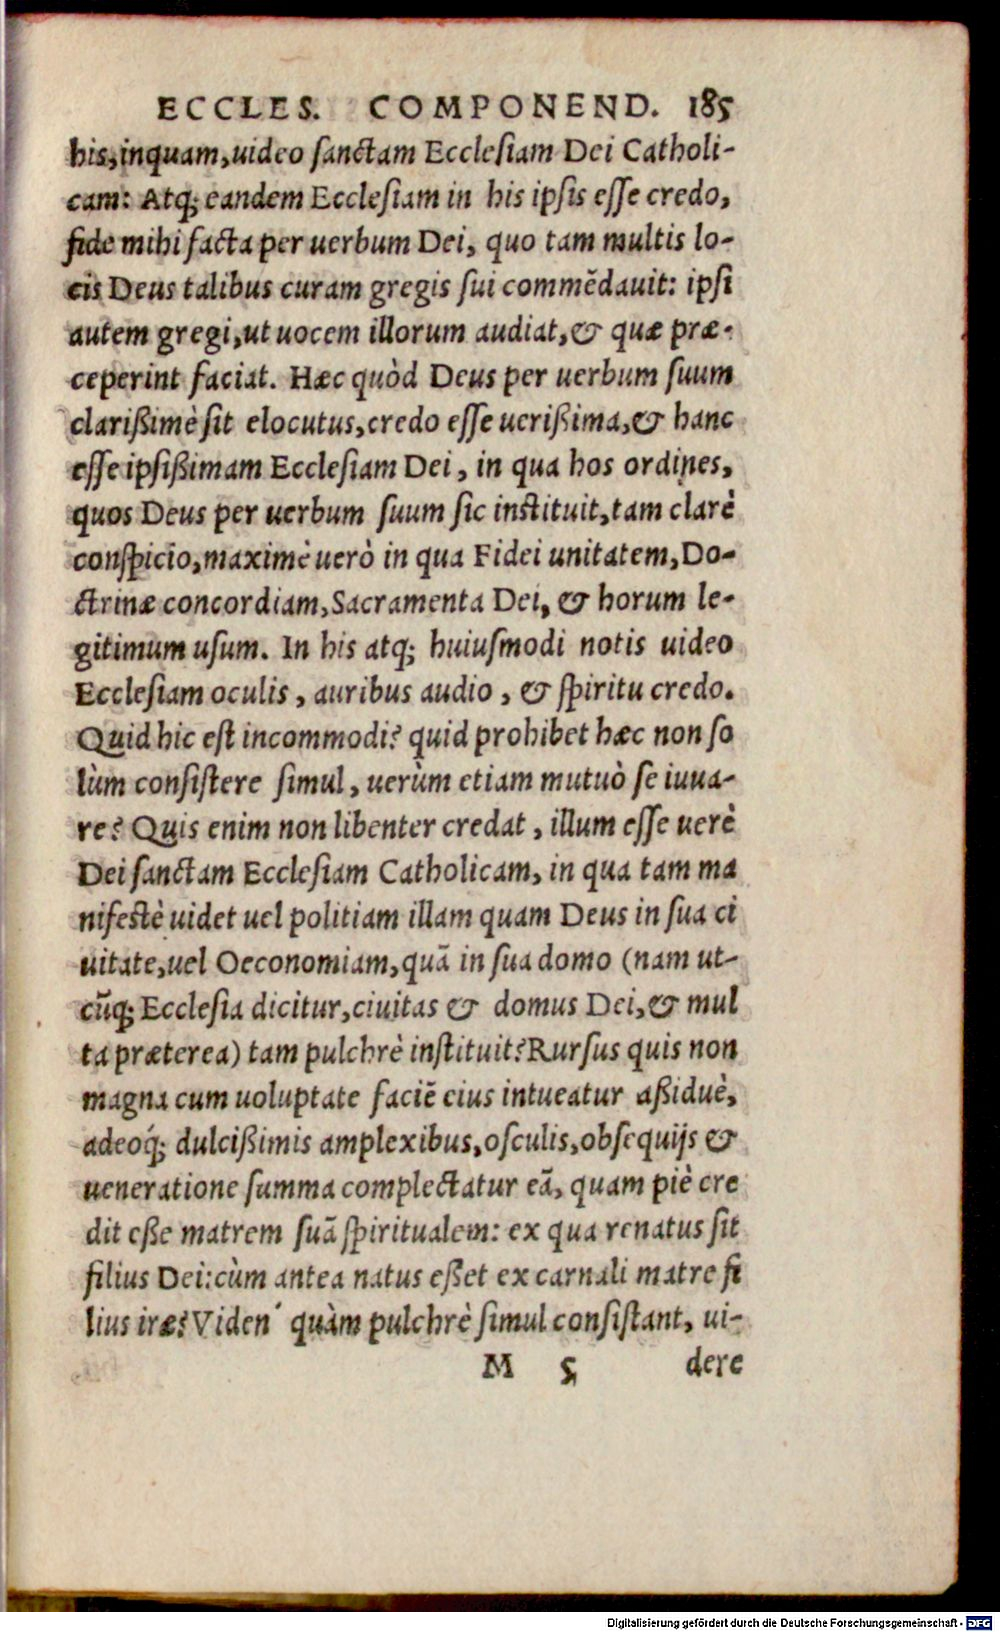 ECCLES. COMPONEND. 185
his, inquam, uideo ſanctam Eccleſiam Dei Catholi-
cam: Atq; eandem Eccleſiam in his ipſis eſſe credo,
fide mihi facta per uerbum Dei, quo tam multis lo-
cis Deus talibus curam gregis ſui commẽdauit: ipſi
autem gregi, ut uocem illorum audiat, & quæ præ-
ceperint faciat. Hæc quòd Deus per uerbum ſuum
clarißimè ſit elocutus, credo eſſe uerißima, & hanc
eſſe ipſißimam Eccleſiam Dei, in qua hos ordines,
quos Deus per uerbum ſuum ſic inſtituit, tam clarè
conſpicio, maximè uerò in qua Fidei unitatem, Do-
ctrinæ concordiam, Sacramenta Dei, & horum le-
gitimum uſum. In his atq; huiuſmodi notis uideo
Eccleſiam oculis, auribus audio, & ſpiritu credo.
Quid hic eſt incommodi? quid prohibet hæc non ſo
lùm conſiſtere ſimul, uerùm etiam mutuò ſe iuua-
re? Quis enim non libenter credat, illum eſſe uerè
Dei ſanctam Eccleſiam Catholicam, in qua tam ma
nifeſtè uidet uel politiam illam quam Deus in ſua ci
uitate, uel Oeconomiam, quã in ſua domo (nam ut-
cũq; Eccleſia dicitur, ciuitas & domus Dei, & mul
ta præterea) tam pulchrè inſtituit? Rurſus quis non
magna cum uoluptate faciẽ eius intueatur aßiduè,
adeoq́; dulcißimis amplexibus, oſculis, obſequijs &
ueneratione ſumma complectatur eã, quam piè cre
dit eße matrem ſuã ſpiritualem: ex qua renatus ſit
filius Dei: cùm antea natus eßet ex carnali matre fi
lius iræ? Viden' quàm pulchrè ſimul conſiſtant, ui-
M 5 dere
Digitalisierung gefördert durch die Deutsche Forschungsgemeinschaft - DFG